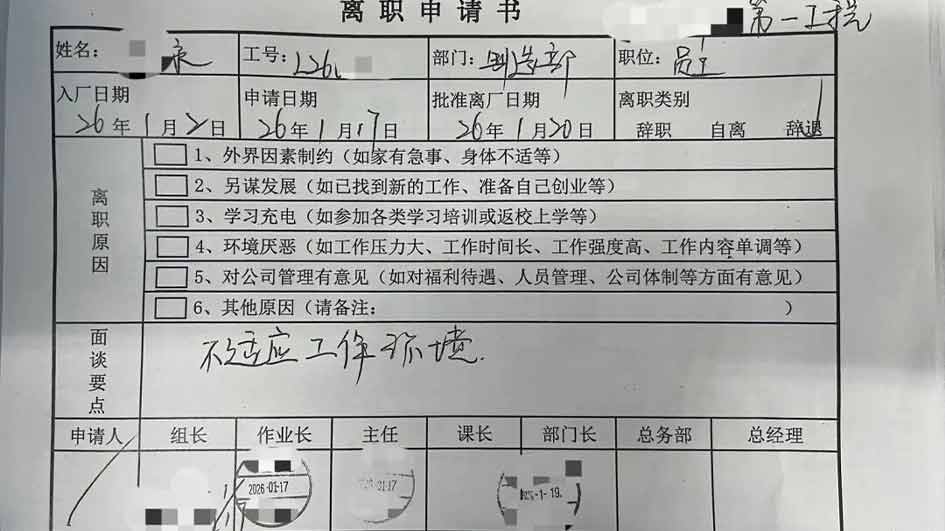 离职申请书
第一工程
姓名: 工号: L26 部门: 制造部 职位: 员工
入厂日期 申请日期 批准离厂日期 离职类别
26年1月2日 26年1月17日 26年1月20日 辞职 自离 辞退
离职原因
1、外界因素制约（如家有急事、身体不适等）
2、另谋发展（如已找到新的工作、准备自己创业等）
3、学习充电（如参加各类学习培训或返校上学等）
4、环境厌恶（如工作压力大、工作时间长、工作强度高、工作内容单调等）
5、对公司管理有意见（如对福利待遇、人员管理、公司体制等方面有意见）
6、其他原因（请备注： ）
面谈要点
不适应工作环境.
申请人 组长 作业长 主任 课长 部门长 总务部 总经理
2026-01-17 01-17 2026-1-19.